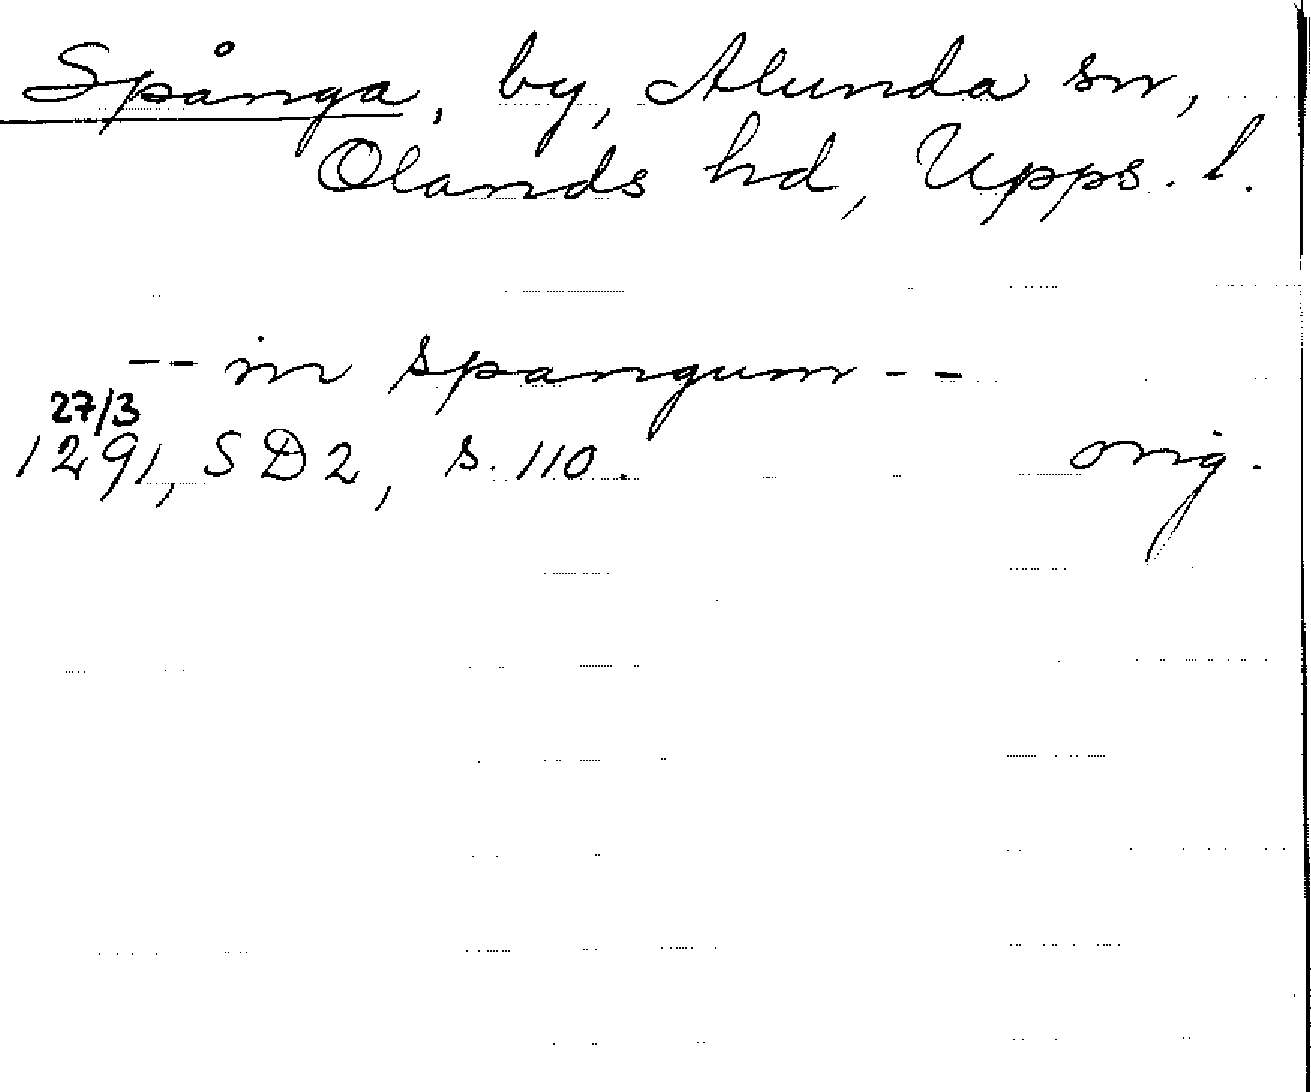 Spånga, by, Alunda sn,
Olands hd, Upps. l.
-- in spangum --
27/3
1291, SD2, s. 110. orig.